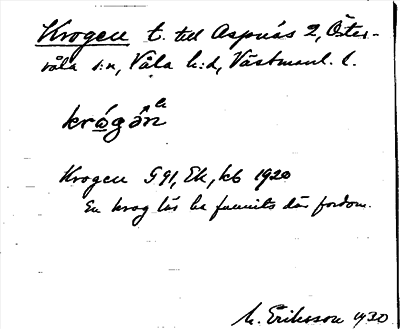 Krogen t. till Aspnäs 2, Öster-
våla s:n, Våla h:d, Västmanl. l.
krógän le
Krogen G 91, Ek, kb 1920
En krog lär ha funnits där fordom.
M. Eriksson 1930